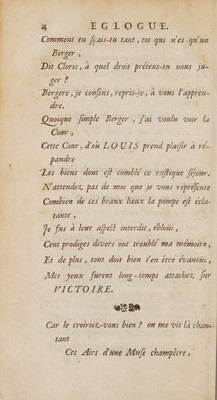 4 EGLOGUE.
Comment en sçais-tu tant, toi qui n'es qu'un
Berger,
Dit Cloris, à quel droit prétens-tu nous ju-
ger ?
Bergere, je consens, repris-je, à vous l'appren-
dre.
Quoique simple Berger, j'ai voulu voir la
Cour,
Cette Cour, d'où LOUIS prend plaisir à ré-
pandre
Les biens dont est comblé ce rustique séjour.
N'attendez pas de moi que je vous représente
Combien de ces beaux lieux la pompe est écla-
tante,
Je fus à leur aspect interdit, ébloüi,
Cent prodiges divers ont troublé ma mémoire,
Et de plus, tout doit bien s'en être évanoüi,
Mes yeux furent long-temps attachez sur
VICTOIRE.
Car le croiriez-vous bien ? on me vit là chan-
tant
Ces Airs d'une Muse champêtre,